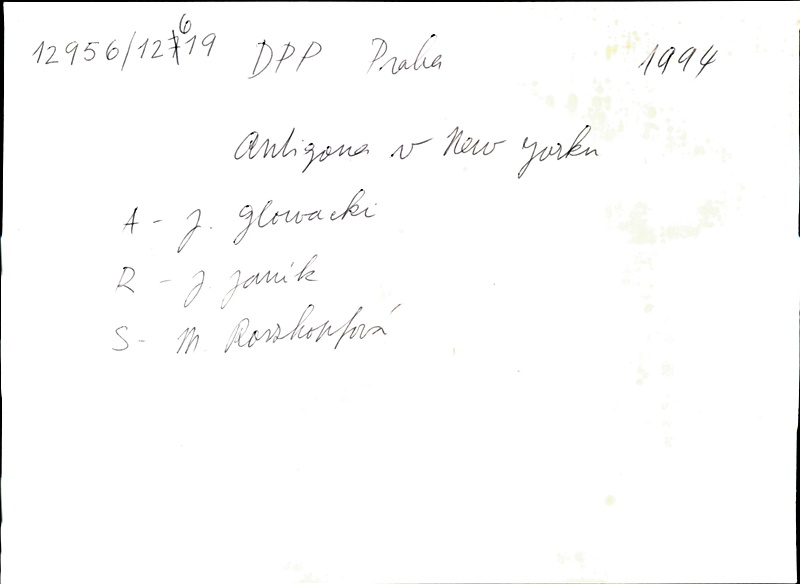 12956/12619 DPP Praha 1994
Antigona v New Yorku
A - J. Glowacki
R - J. Janik
S - M. Roszkopfová